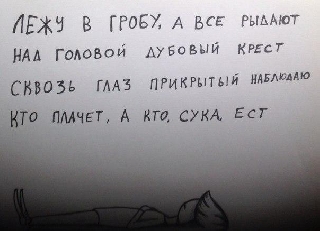 ЛЕЖУ В ГРОБУ, А ВСЕ РЫДАЮТ
НАД ГОЛОВОЙ ДУБОВЫЙ КРЕСТ
СКВОЗЬ ГЛАЗ ПРИКРЫТЫЙ НАБЛЮДАЮ
КТО ПЛАЧЕТ, А КТО, СУКА, ЕСТ